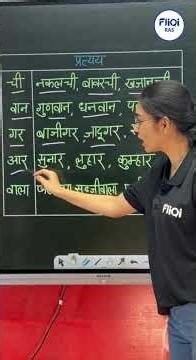 FliQi
RAS
प्रत्यय
ची नकलची, बावरची, खजानची
वान गुणवान, धनवान,
गर बाजीगर, जादूगर,
आर सुनार, लुहार, कुम्हार
वाला सब्जीवाला
FliQi